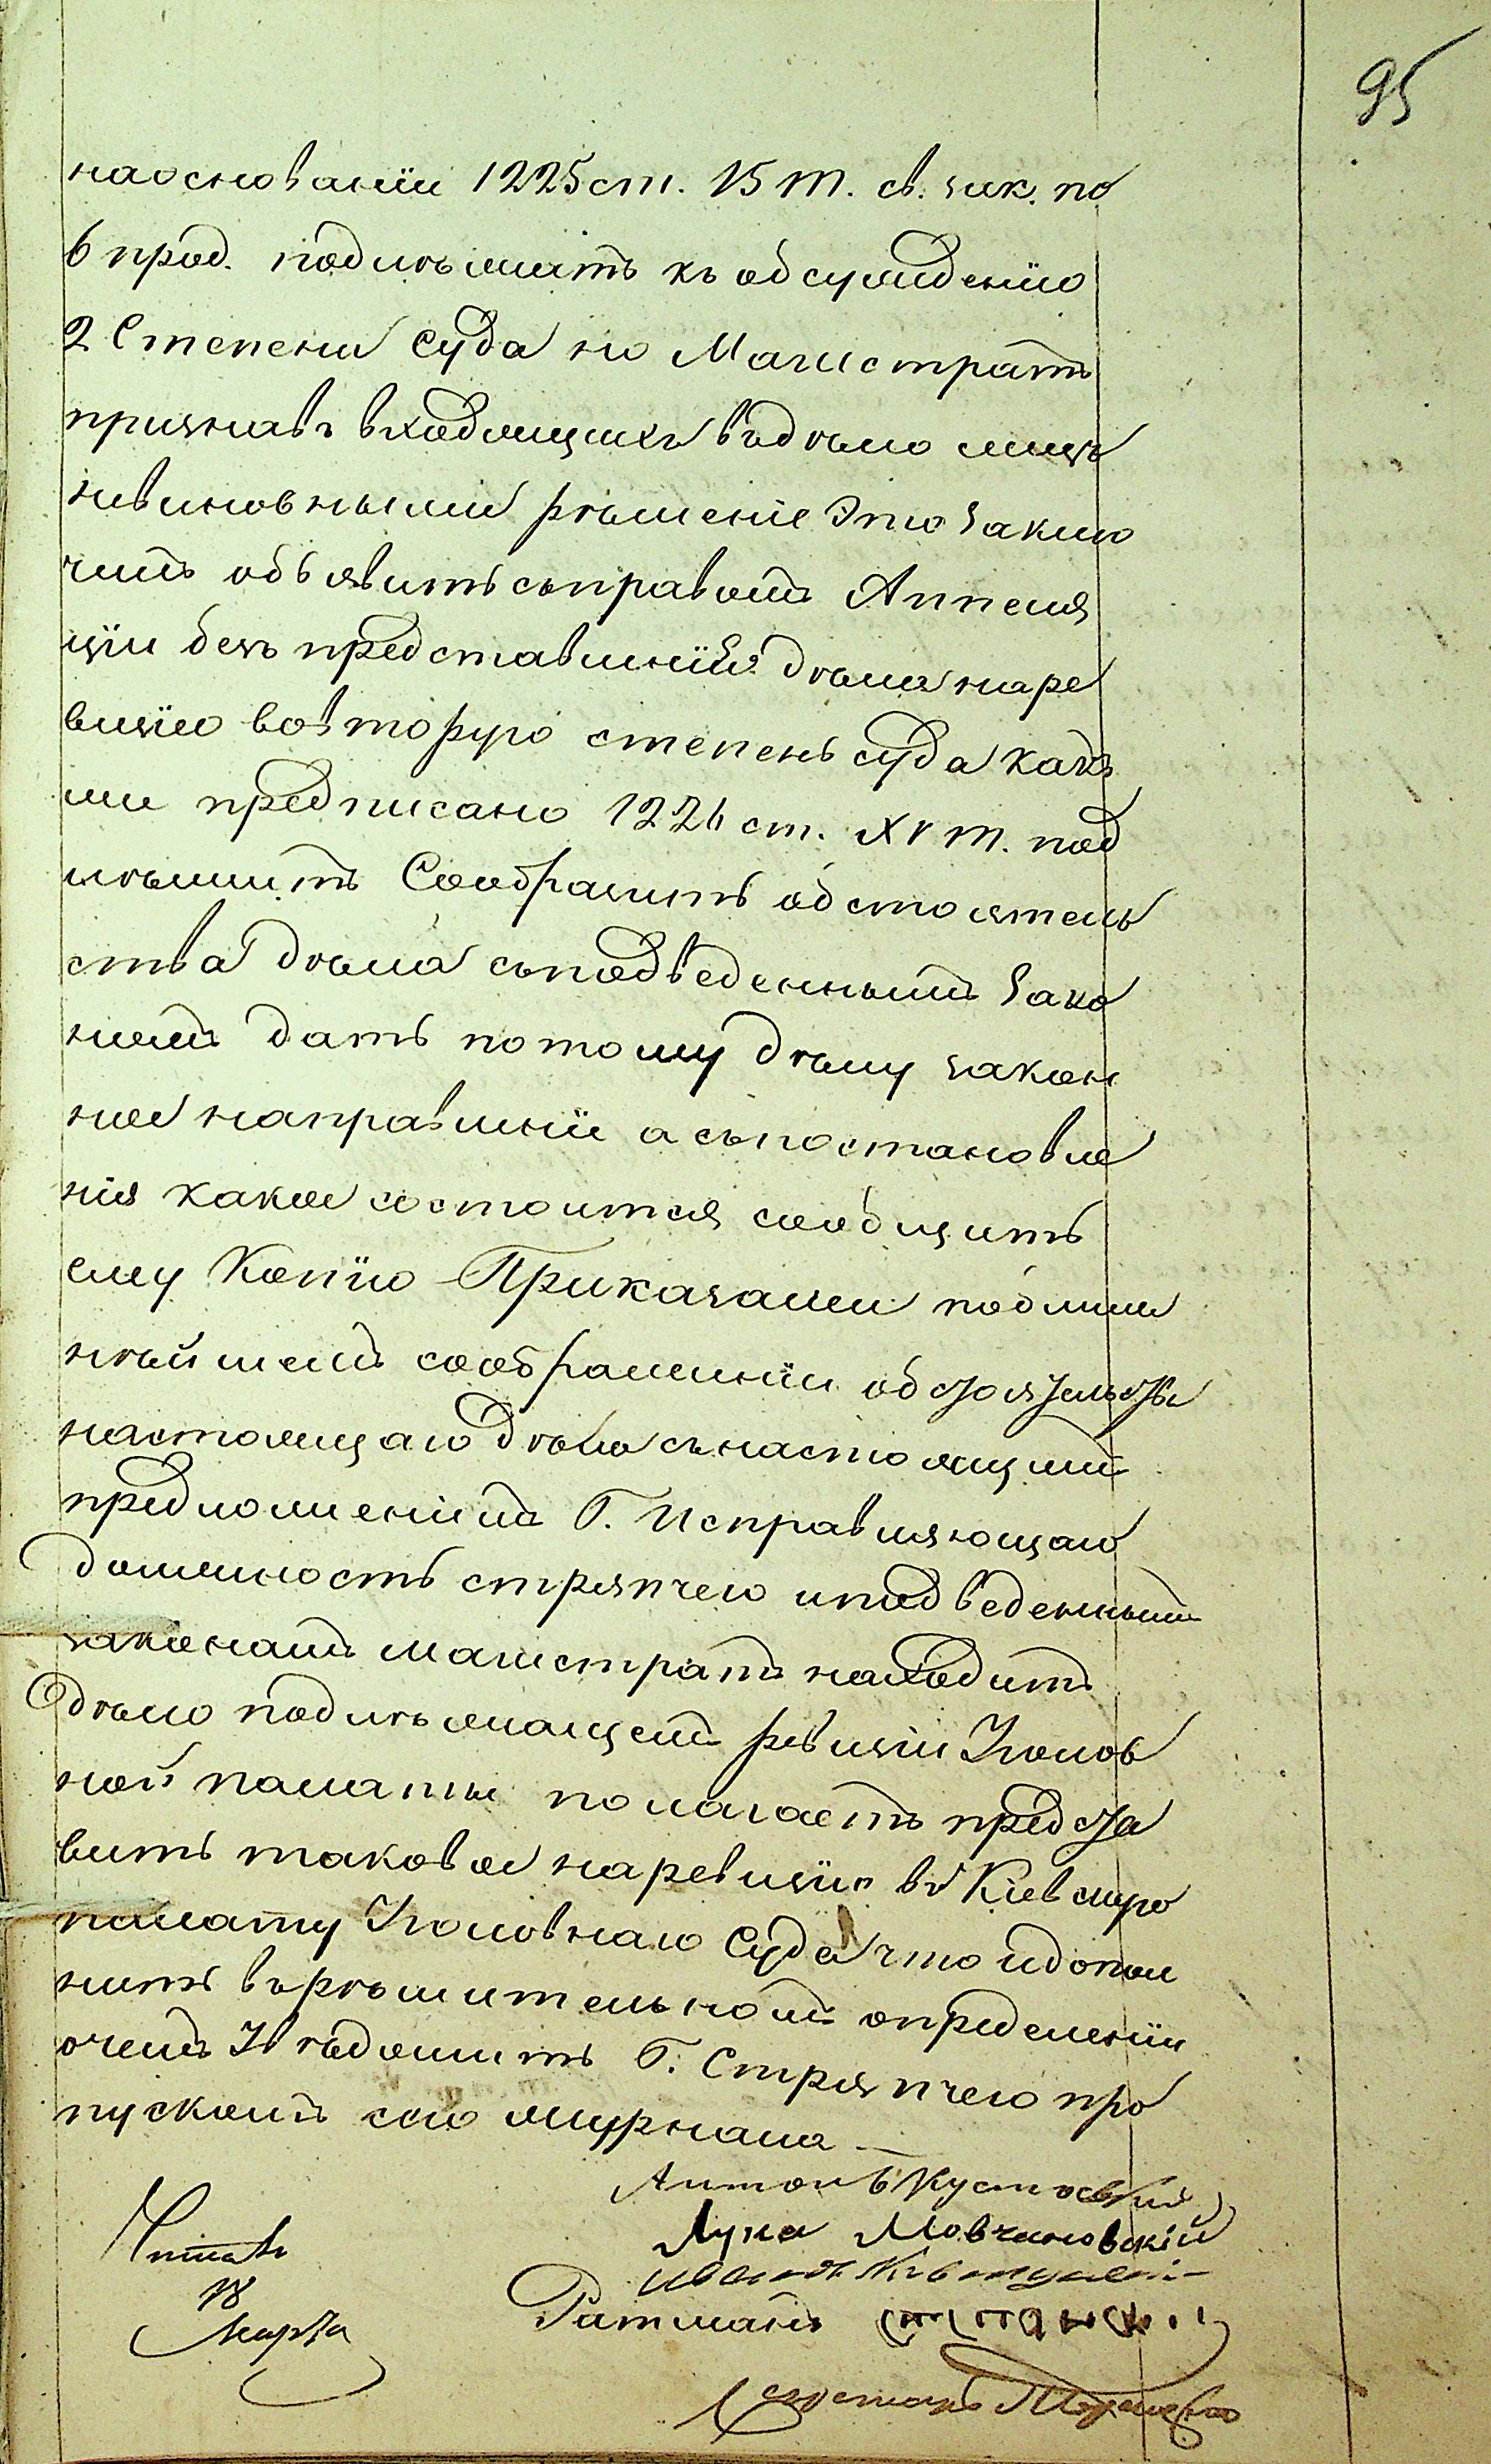 95
наоснованіи 1225 ст. 15 т. св. зак. по
6 прод. подлѣжитъ къ обсужденію
2 Степени Суда но Магистратъ
признавъ входящихъ въдѣло лицъ
невиновными рѣшеніе это заклю
читъ объявить съправомъ Аппеля
ціи безъ представленія дѣла наре
визію вовторую степень суда какъ
ли предписано 1226 ст. XV т. под
лѣжитъ Сообразить обстоятель
ства дѣла съподведеннымъ Зако
номъ дать потому дѣлу закон
ное направленіи а съпостановле
нія какое состоится сообщить
ему Копію Приказали подлин
нѣйшемъ соображеніи обстоятельствъ
настоящаго дѣла сънастоящимъ
предложеніимъ Г. Исправляющаго
должность стряпчего иподведеннымъ
законамъ магистратъ находитъ
дѣло подлѣжащемъ ревизіи Уголов
ной палаты полагаетъ предста
вить таковое наревизію въ Кіевскую
палату Уголовнаго Суда что идопол
нить върѣшительномъ опредѣленіи
очемъ Увѣдомить Г. Стряпчего про
пускомъ сего журнала —
Антонъ Кустовскій
Лука Мовчановскій
Ратманъ
Читалъ
18
Марта